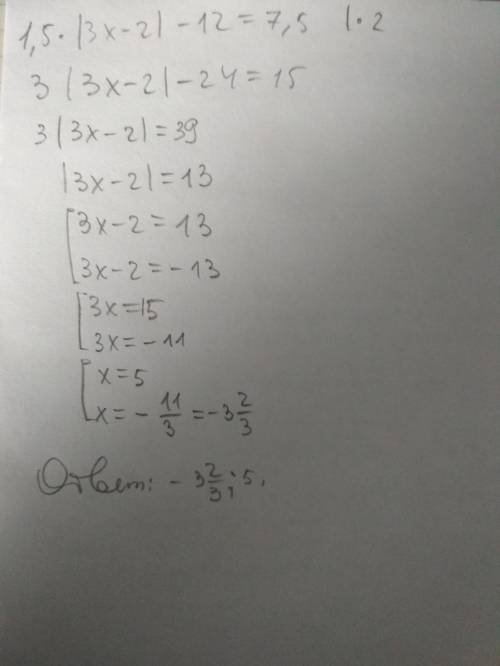 1,5·|3x-2|-12=7,5 |·2
3|3x-2|-24=15
3|3x-2|=39
|3x-2|=13
[3x-2=13
3x-2=-13
[3x=15
3x=-11
[x=5
x=-11/3=-3 2/3
Ответ: -3 2/3; 5.